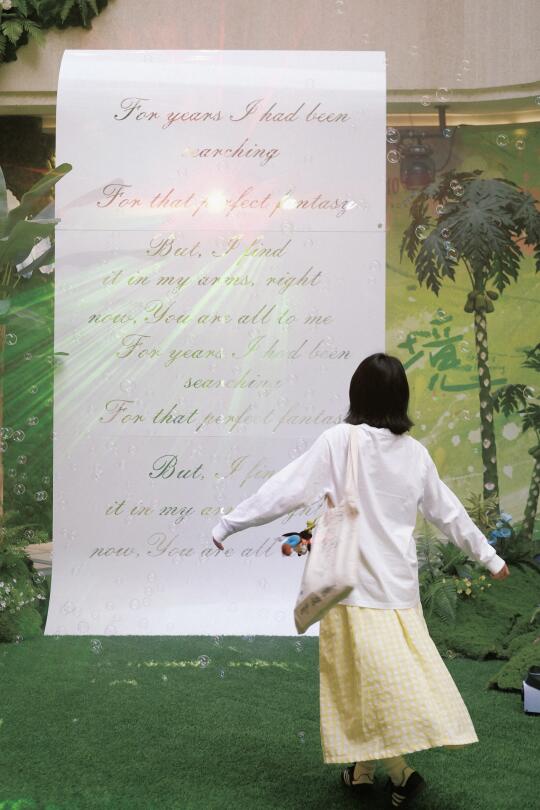 For years I had been
searching
For that perfect fantasy
But, I find
it in my arms, right
now. You are all to me
For years I had been
searching
For that perfect fantasy
But, I find
it in my arms, right
now. You are all
意境